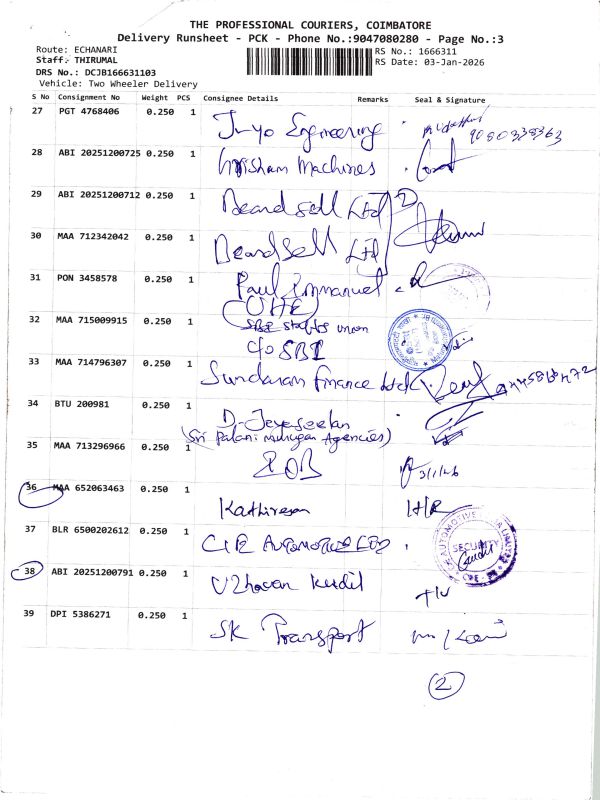 THE PROFESSIONAL COURIERS, COIMBATORE
Delivery Runsheet - PCK - Phone No.:9047080280 - Page No.:3
Route: ECHANARI
RS No.: 1666311
Staff: THIRUMAL
RS Date: 03-Jan-2026
DRS No.: DCJB166631103
Vehicle: Two Wheeler Delivery
S No Consignment No Weight PCS Consignee Details Remarks Seal & Signature
27 PGT 4768406 0.250 1 Engineering
28 ABI 20251200725 0.250 1 Machines
29 ABI 20251200712 0.250 1 Beardsell Ltd
30 MAA 712342042 0.250 1 Beardsell Ltd
31 PON 3458578 0.250 1 Paul Emmanuel
32 MAA 715009915 0.250 1 union
C/o SBI
33 MAA 714796307 0.250 1 Sundaram Finance Ltd
34 BTU 200981 0.250 1 D. Jeyaseelan
(Sri Palani murugan Agencies)
35 MAA 713296966 0.250 1 IOB 3/1/26
36 MAA 652063463 0.250 1 Kathiresan H/R
37 BLR 6500202612 0.250 1 Automotive Ltd
SECURITY
38 ABI 20251200791 0.250 1 Uzhavan Kudil
39 DPI 5386271 0.250 1 SK Transport
2